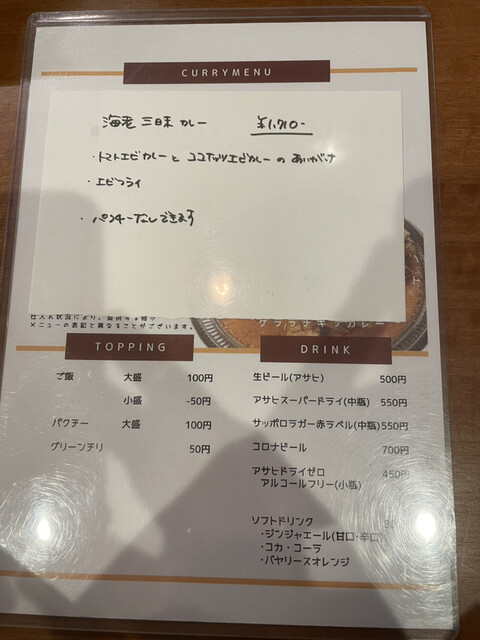 CURRYMENU
海老三昧カレー ¥1,710-
・トマトエビカレーとココナッツエビカレーのあいがけ
・エビフライ
・パクチーなしできます
仕入れ状況により、
メニューの表記と異なることがございます。
ケララチキンカレー
TOPPING
ご飯 大盛 100円
小盛 -50円
パクチー 大盛 100円
グリーンチリ 50円
DRINK
生ビール(アサヒ) 500円
アサヒスーパードライ(中瓶) 550円
サッポロラガー赤ラベル(中瓶) 550円
コロナビール 700円
アサヒドライゼロ 450円
アルコールフリー(小瓶)
ソフトドリンク
・ジンジャエール(甘口・辛口)
・コカ・コーラ
・バヤリースオレンジ